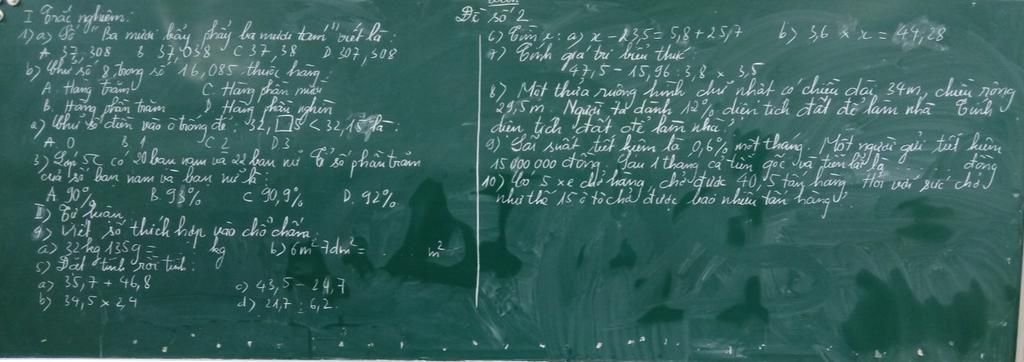 Đề số 2
I Trắc nghiệm:
1) a) Số "Ba mươi bảy phẩy ba mươi tám" viết là:
A 37,308 B 37,038 C 37,38 D 307,308
b) Chữ số 8 trong số 16,085 thuộc hàng
A. Hàng trăm C. Hàng phần mười
B. Hàng phần trăm D Hàng phần nghìn
2) Chữ số điền vào ô trống để: 32,□5 < 32,15 là:
A 0 B 1 C 2 D 3
3) Lớp 5C có 20 bạn nam và 22 bạn nữ Tỉ số phần trăm
của số bạn nam và bạn nữ là:
A 90% B 98% C 90,9% D. 92%
II) Tự luận
4) Viết số thích hợp vào chỗ chấm:
a) 32kg 135g = kg b) 6m² 7dm² = m²
5) Đặt tính rồi tính:
a) 35,7 + 46,8 c) 43,5 - 24,7
b) 34,5 x 2,4 d) 21,7 : 6,2
6) Tìm x: a) x - 23,5 = 5,8 + 25,7 b) 3,6 x x = 49,28
7) Tính giá trị biểu thức:
47,5 - 15,96 : 3,8 x 3,5
8) Một thửa ruộng hình chữ nhật có chiều dài 34m, chiều rộng
29,5m. Người ta dành 12% diện tích đất để làm nhà Tính
diện tích đất để làm nhà?
9) Lãi suất tiết kiệm là 0,6% một tháng. Một người gửi tiết kiệm
15 000 000 đồng. Sau 1 tháng cả tiền gốc và tiền lãi là ... đồng
10) Có 5 xe chở hàng chở được 40,5 tấn hàng Hỏi với sức chở
như thế 15 ô tô chở được bao nhiêu tấn hàng?